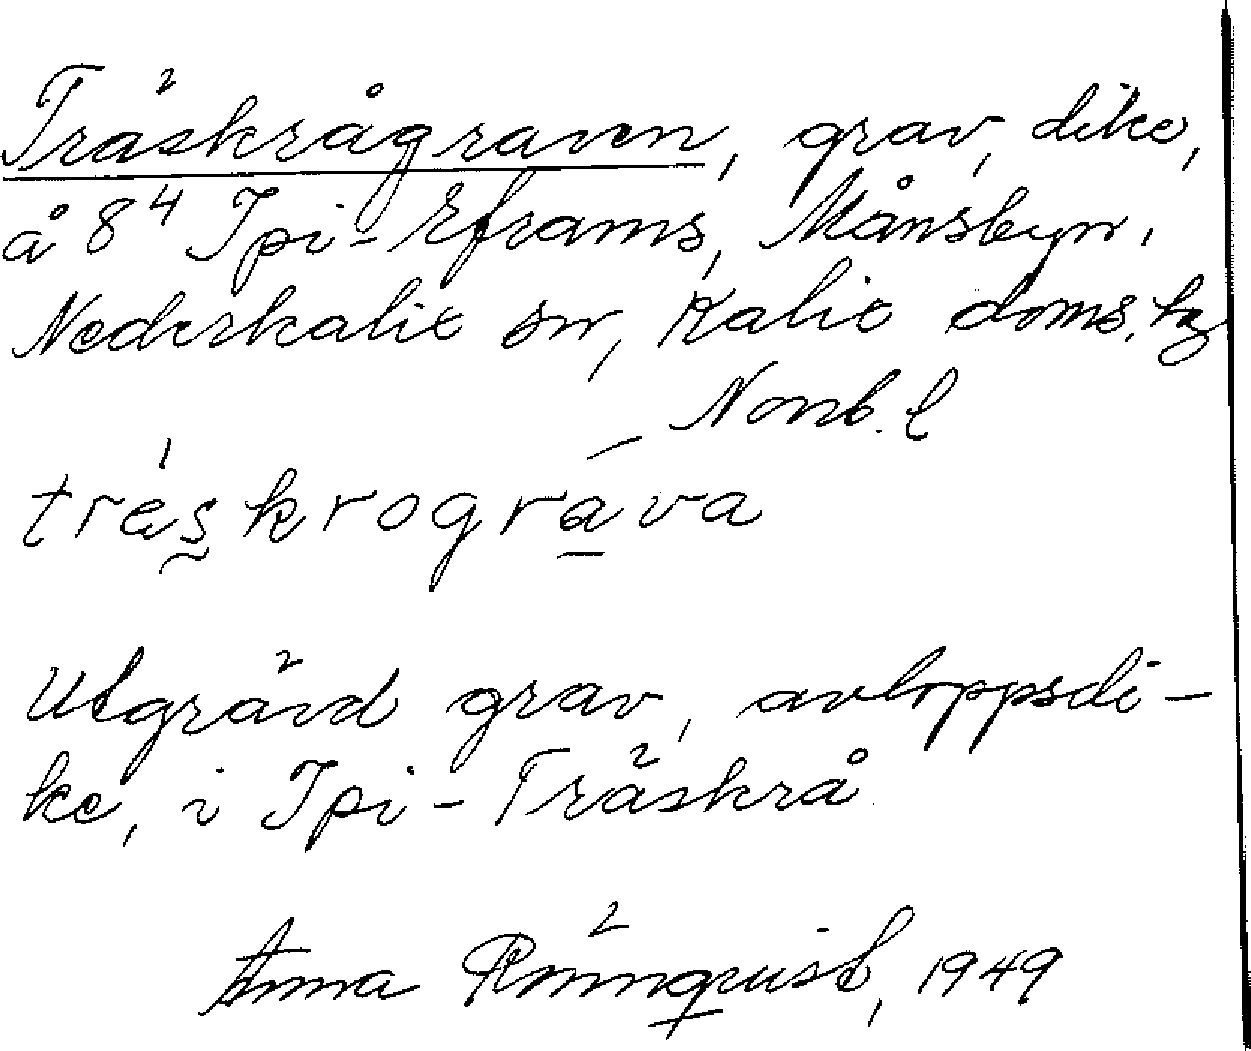 Träskrågraven, grav, dike,
å 8⁴ Ipi-Eframs, Månsbyn,
Nederkalix sn, Kalix doms. hg
Norrb. l
tre̍skrogra̱va
Utgrävd grav, avloppsdi-
ke, i Ipi-Träskrå
Anna Rönnqvist, 1949